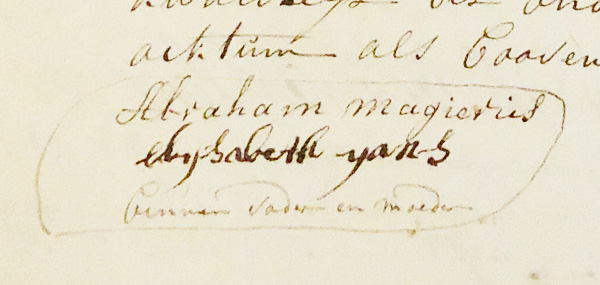 acktum als Booven
Abraham magieriis
elysabeth yans
binnen vader en moeder